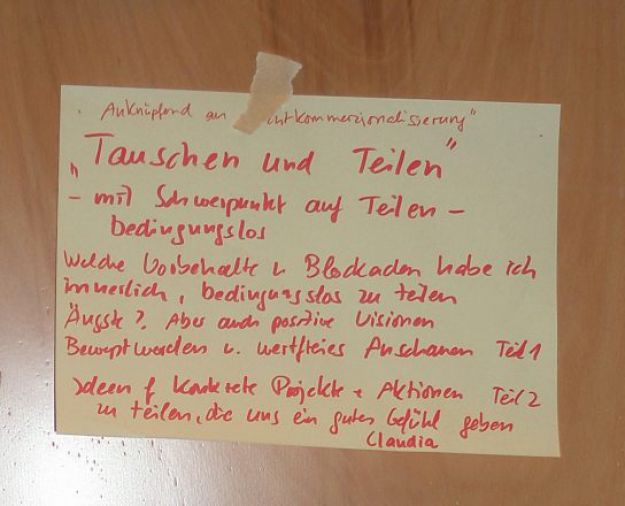 Anknüpfend an ntkommerzionalisierung"
„Tauschen und Teilen"
- mit Schwerpunkt auf Teilen -
bedingungslos
Welche Vorbehalte u Blockaden habe ich
innerlich, bedingungslos zu teilen
Ängste?. Aber auch positive Visionen
Bewusstwerden u. wertfreies Anschauen Teil 1
Ideen f konkrete Projekte + Aktionen Teil 2
zu teilen, die uns ein gutes Gefühl geben
Claudia